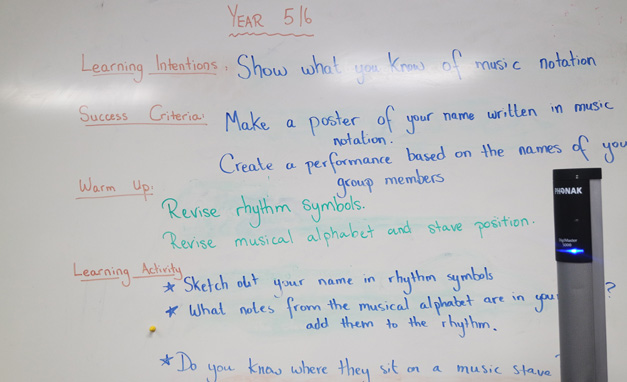 YEAR 5/6
Learning Intentions: Show what you know of music notation
Success Criteria: Make a poster of your name written in music
notation.
Create a performance based on the names of you
group members
Warm Up:
Revise rhythm symbols.
Revise musical alphabet and stave position.
Learning Activity
* Sketch out your name in rhythm symbols
* What notes from the musical alphabet are in you ?
add them to the rhythm.
* Do you know where they sit on a music stave
PHONAK